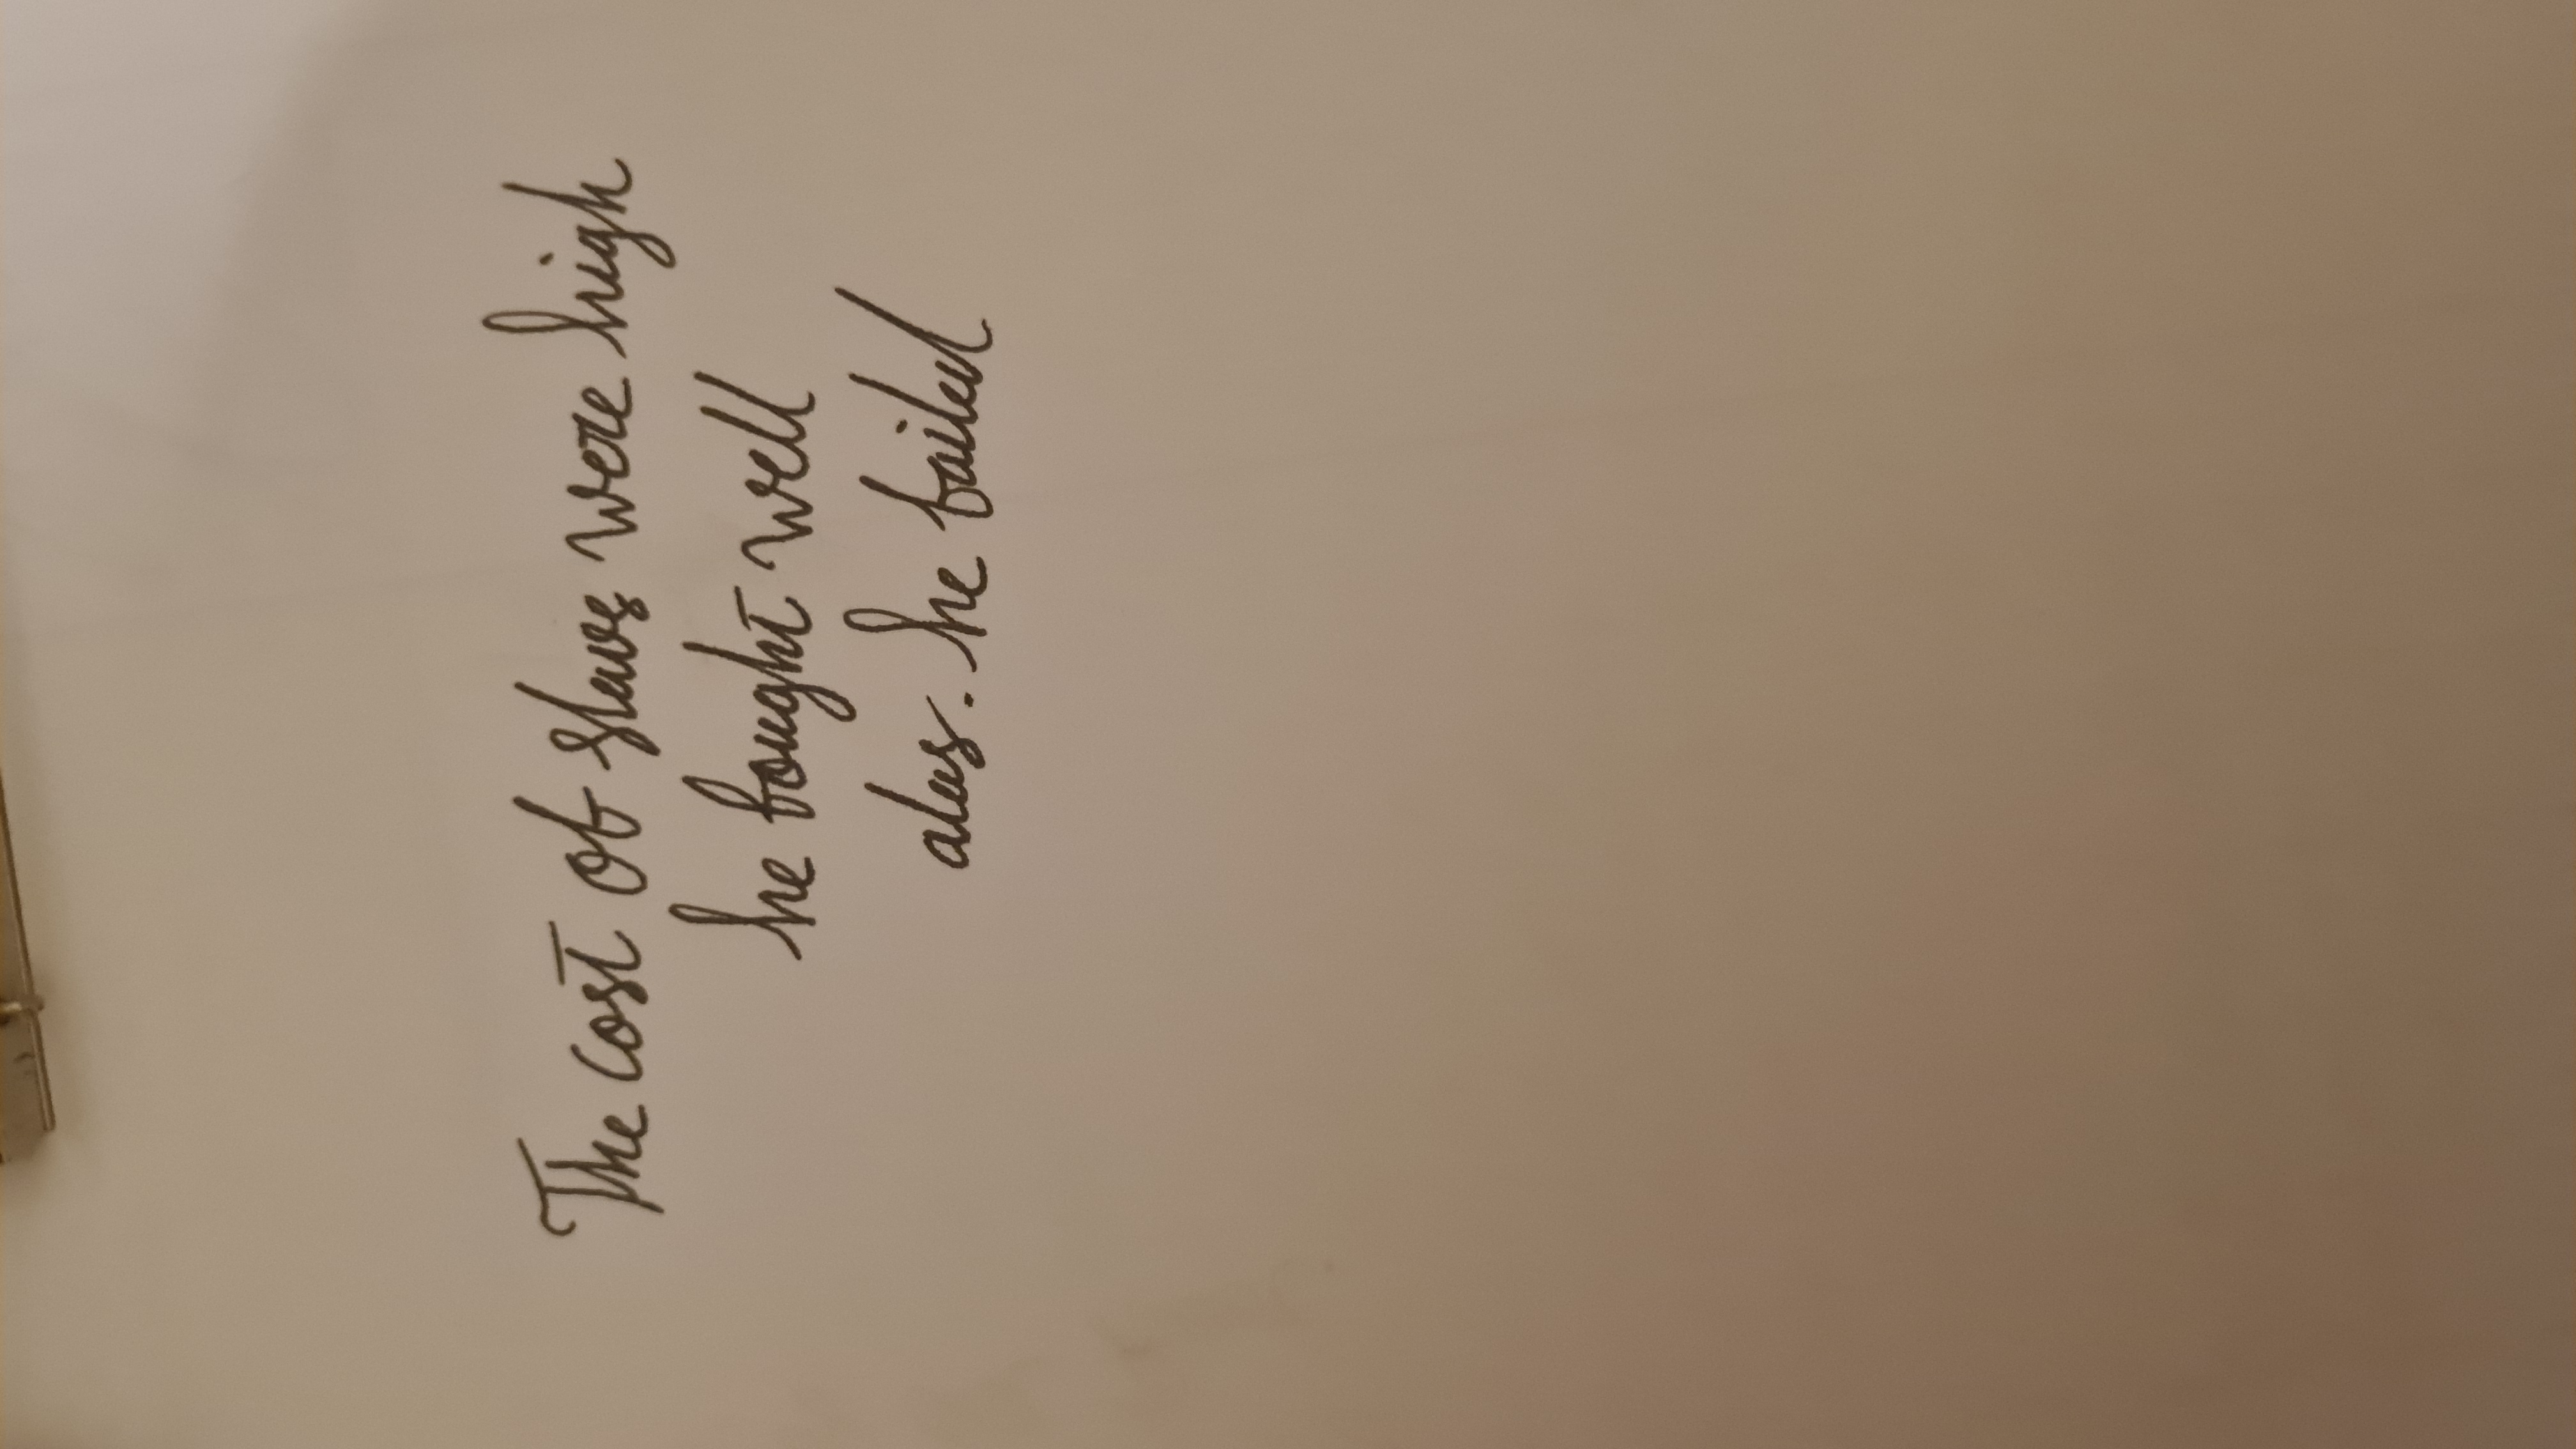 The cost of slaves were high
he fought well
alas. he failed